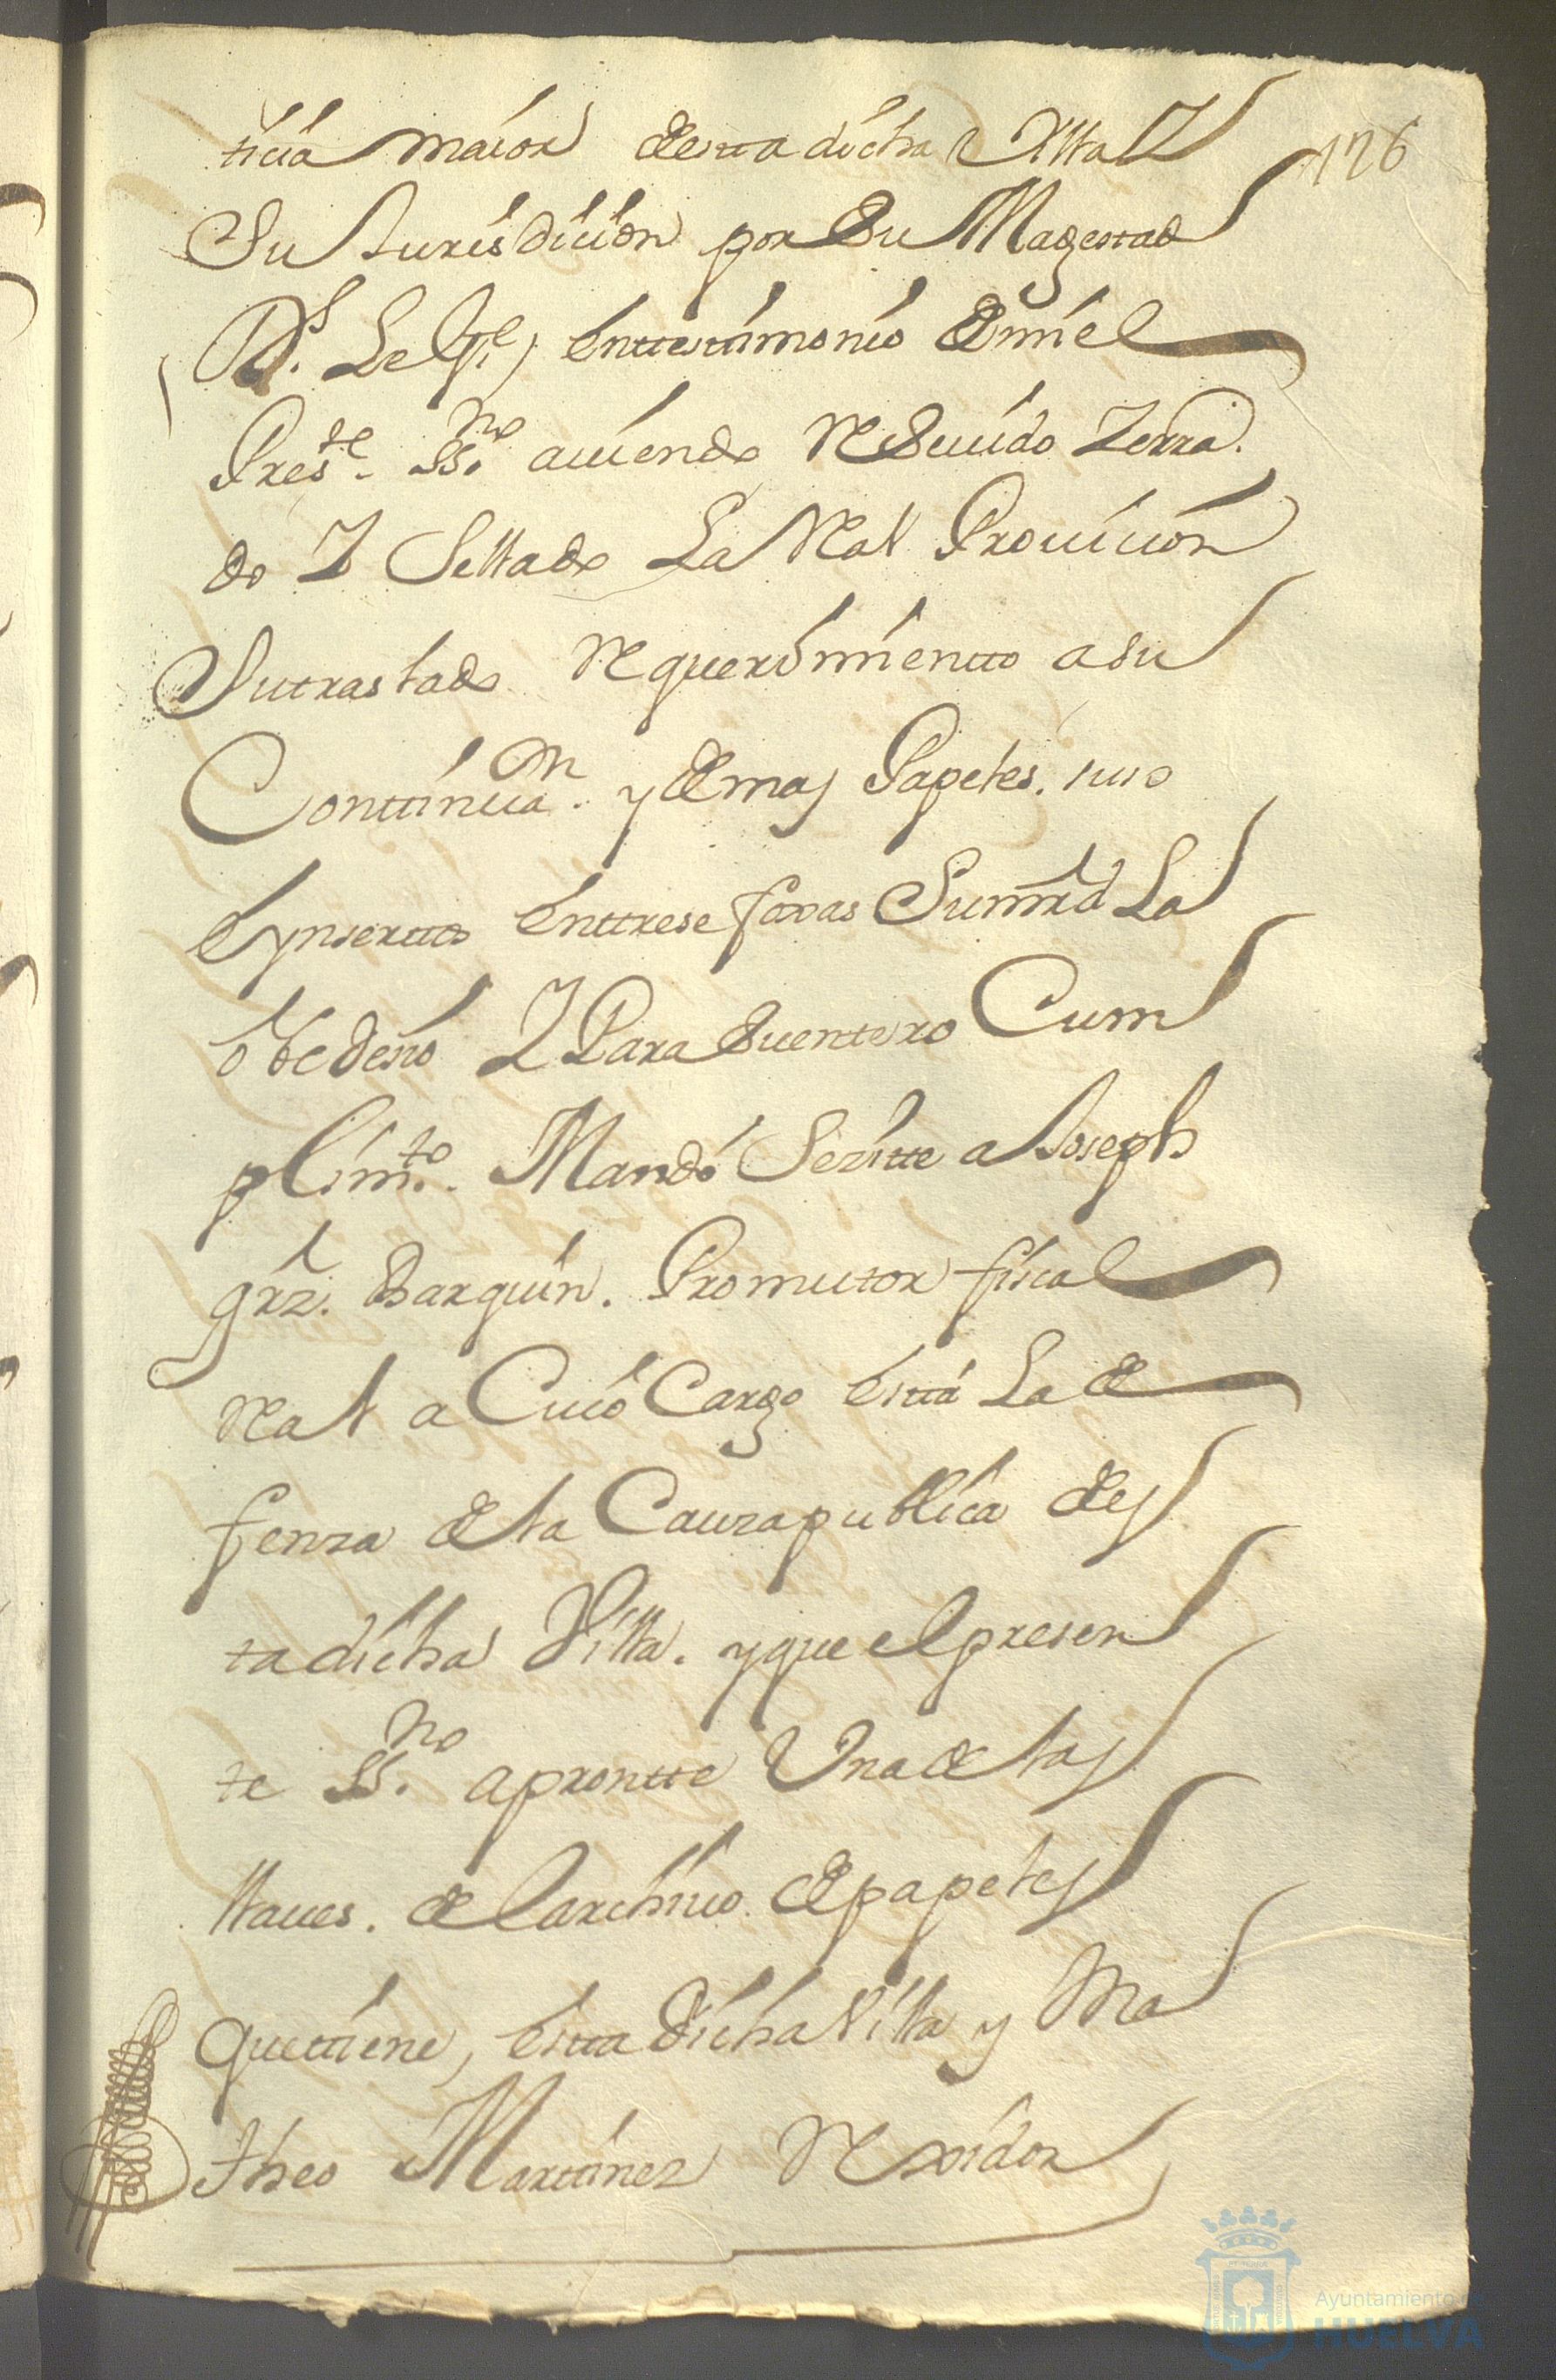 ticia maior desta dicha Villa Y
126
Su Jurisdicion por Su Magestad
Ds. Le Gde, Enttestimonio de mi el
Preste. SSno. auiendo Resiuido Zerra.
do Y Sellado La Real Prouicion
Su traslado Requerimientto a su
Conttinuan. y demas Papeles. suso
Eynsertto Enttrese foxas Su mrd La
obedesio Y Para Su entero Cum
plimto. Mandó Se zitte a Joseph
grz. Barquin. Promutor fiscal
Real a Cuio Cargo Está La de
fenza de la Cauza publica des
ta dicha Villa. y que el presen
te SSno. apromtte Una de las
llaues. de el archiuo de papeles
que tiene, Esta dicha Villa y Ma
theo Marttinez Rexidor
Ayuntamiento de
HUELVA